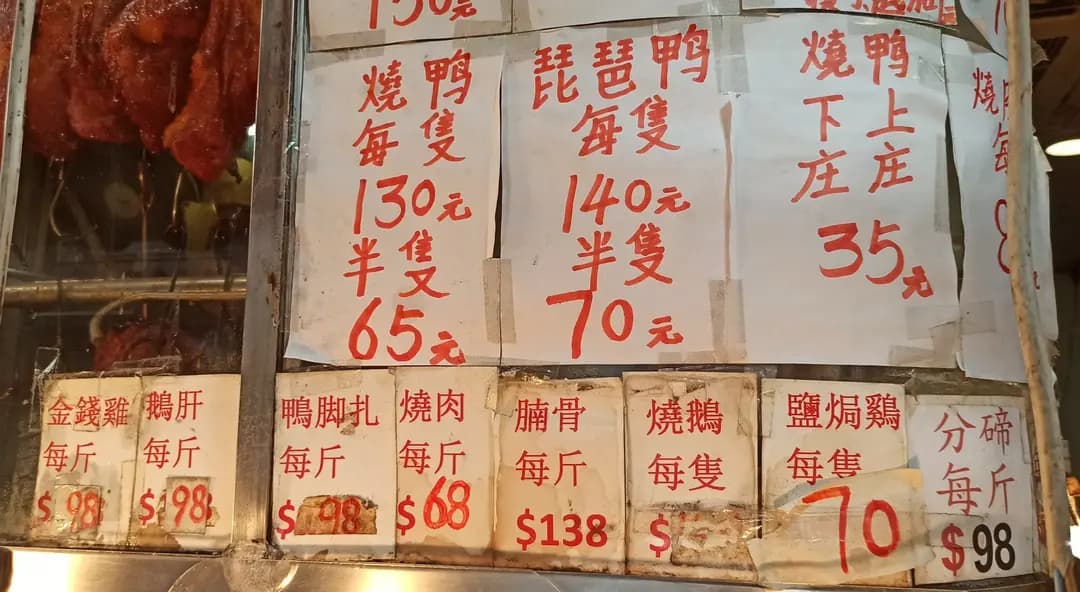 燒鴨
每隻
130元
半隻
65元
琵琶鴨
每隻
140元
半隻
70元
燒鴨
下上
庄庄
35元
燒肉
每
金錢雞
每斤
$98
鵝肝
每斤
$98
鴨脚扎
每斤
$98
燒肉
每斤
$68
腩骨
每斤
$138
燒鵝
每隻
$
鹽焗鷄
每隻
70
分碲
每斤
$98